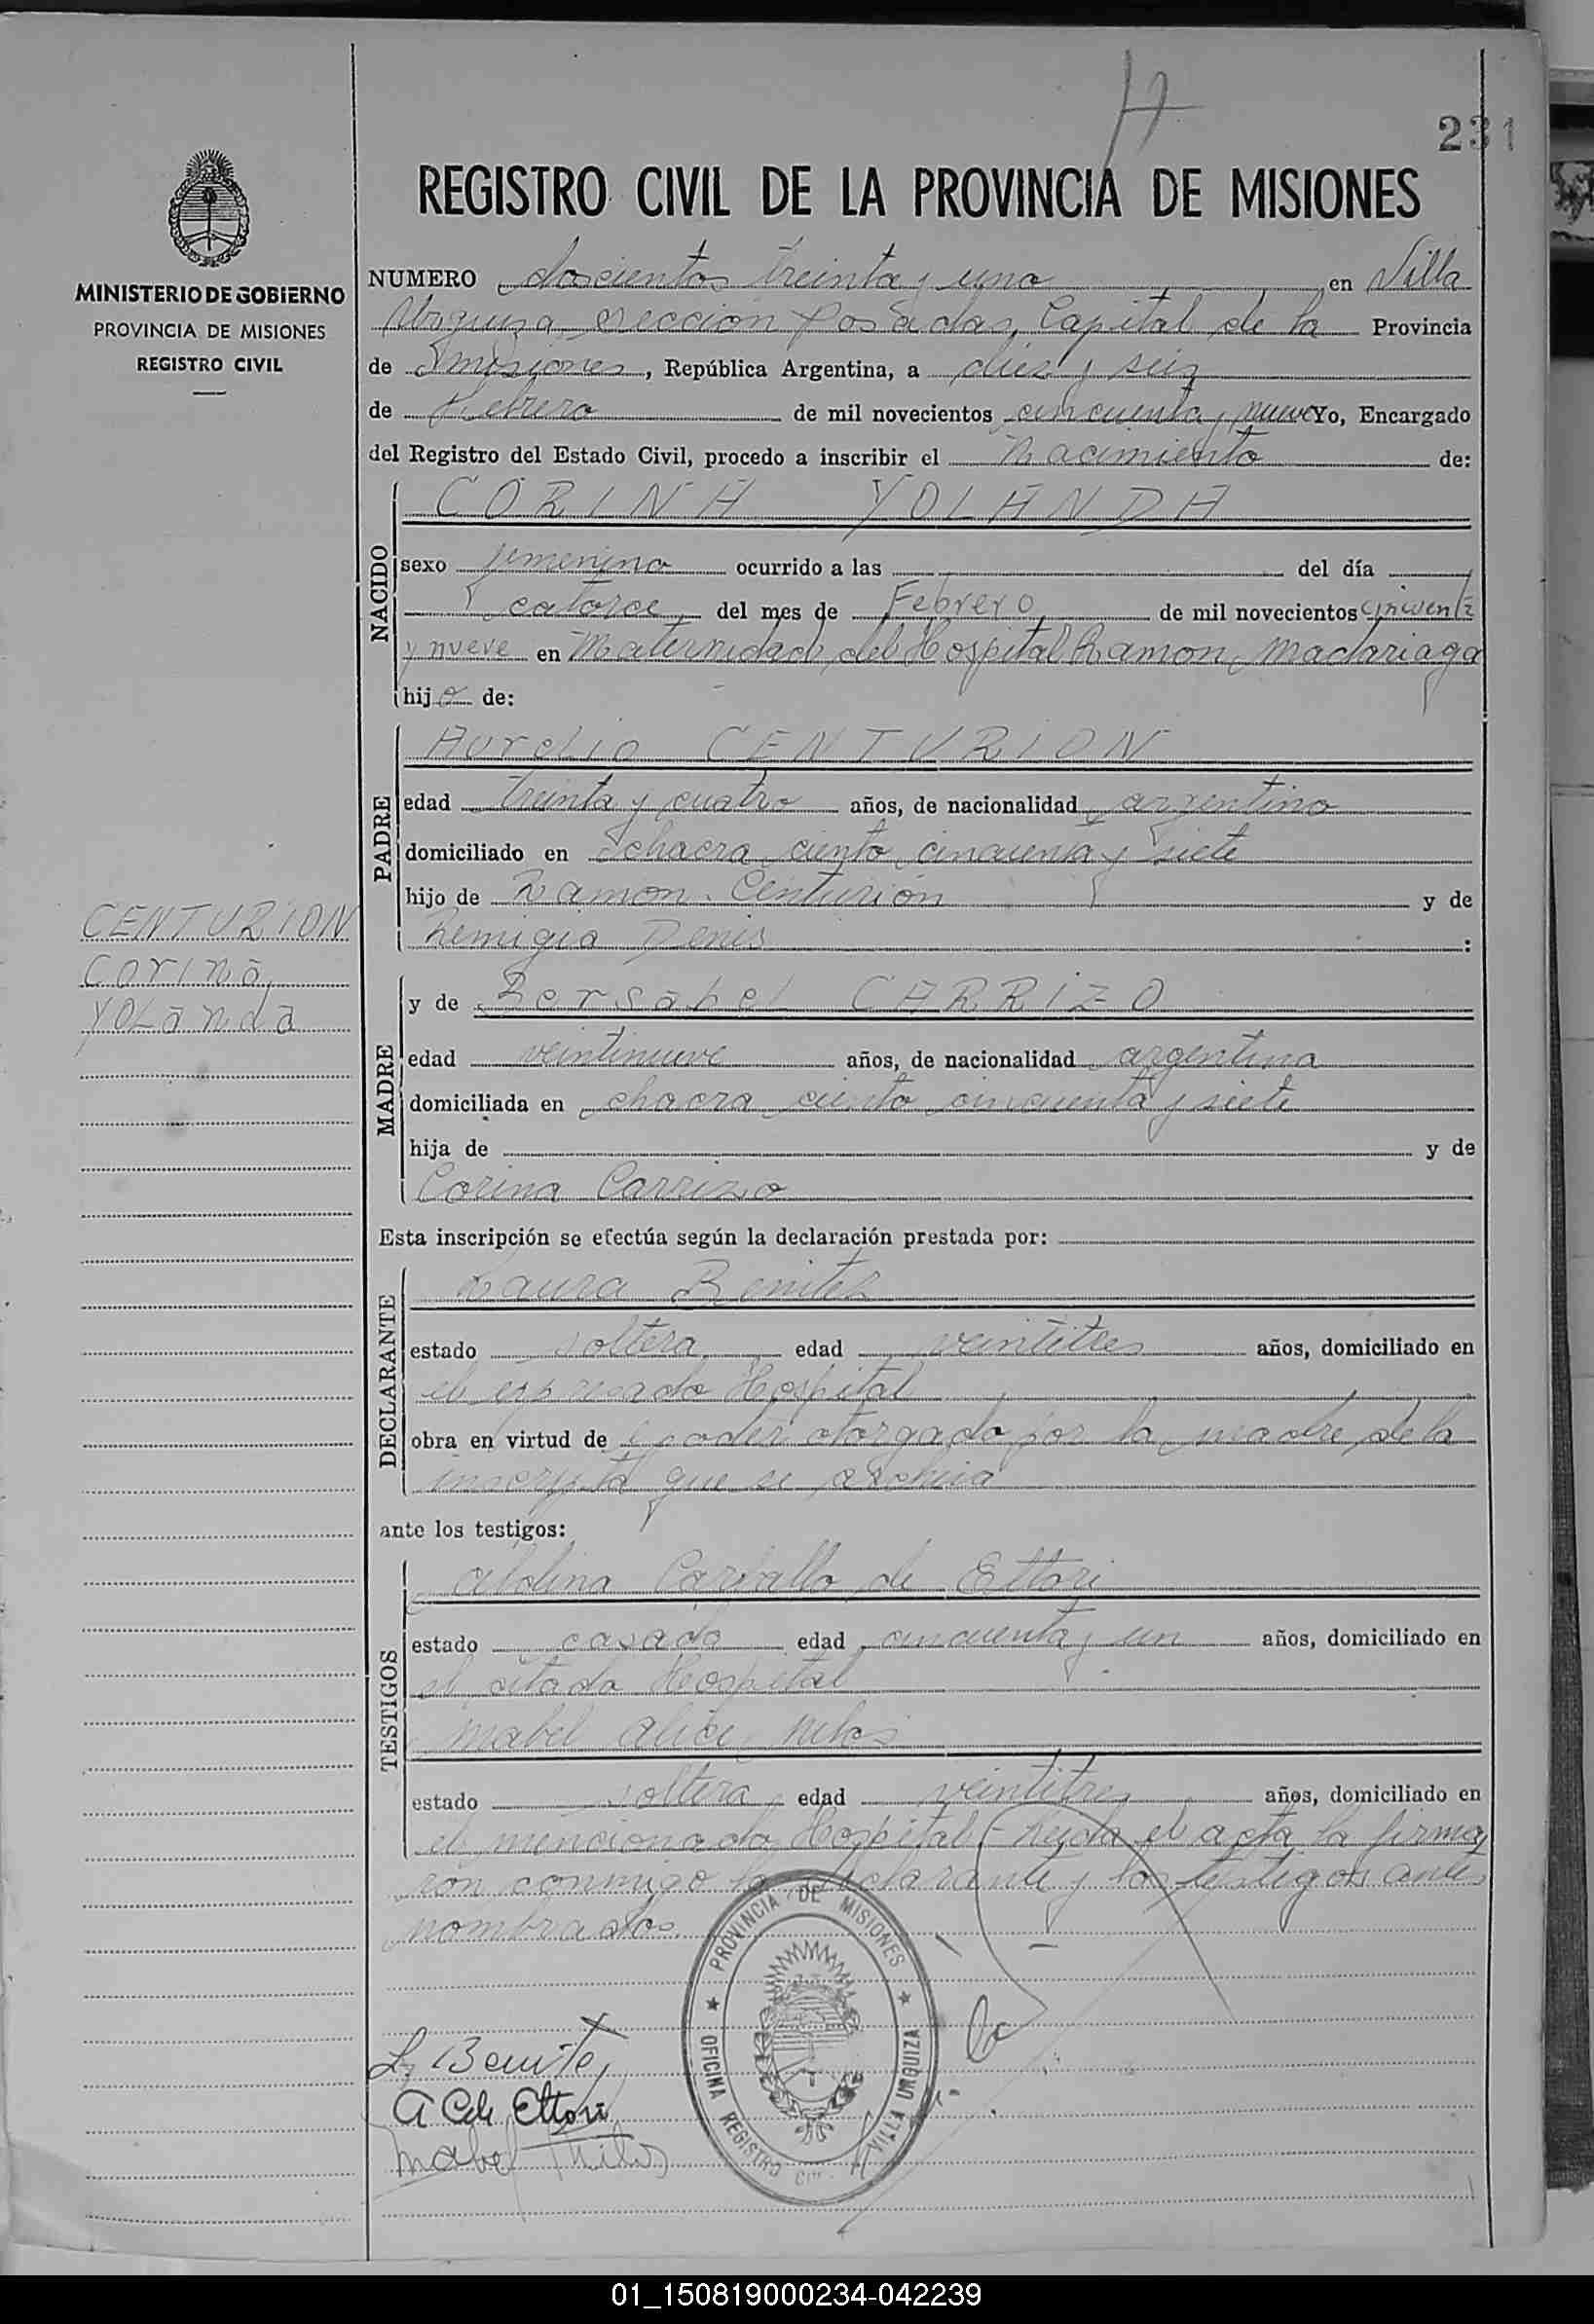 231
REGISTRO CIVIL DE LA PROVINCIA DE MISIONES
MINISTERIO DE GOBIERNO
PROVINCIA DE MISIONES
REGISTRO CIVIL
NUMERO doscientos treinta y uno en Villa
Urquiza sección Posadas, Capital de la Provincia
de Misiones, República Argentina, a diez y seis
de Febrero de mil novecientos cincuenta y nueve Yo, Encargado
del Registro del Estado Civil, procedo a inscribir el Nacimiento de:
NACIDO
CORINA YOLANDA
sexo femenino ocurrido a las del día
catorce del mes de Febrero de mil novecientos cincuenta
y nueve en Maternidad del Hospital Ramon Madariaga
hija de:
PADRE
Aurelio CENTURION
edad treinta y cuatro años, de nacionalidad argentino
domiciliado en chacra ciento cincuenta y siete
hijo de Ramon Centurión y de
Remigia Denis :
CENTURION
Corina
YOLanda
MADRE
y de Bersabel CARRIZO
edad veintinueve años, de nacionalidad argentina
domiciliada en chacra ciento cincuenta y siete
hija de y de
Corina Carrizo
Esta inscripción se efectúa según la declaración prestada por:
DECLARANTE
Laura Benitez
estado soltera edad veintitres años, domiciliado en
el expresado Hospital
obra en virtud de poder otorgado por la madre de la
inscripta que se archiva
ante los testigos:
TESTIGOS
Carballo de Ettori
estado casada edad cincuenta y un años, domiciliado en
el citado Hospital
Mabel Alice
estado soltera edad veintitres años, domiciliado en
el mencionado Hospital - Leyda el acta la firma
ron conmigo la declarante y los testigos antes
nombrados.
PROVINCIA DE MISIONES
OFICINA REGISTRO CIVIL VILLA URQUIZA
L. Benitez
A C de Ettori
Mabel
01_150819000234-042239